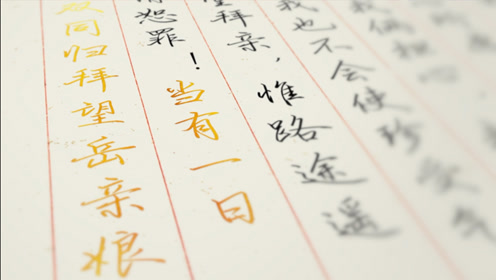 我也不会使珍受
拜亲，惟路途遥
恕罪！当有一日
双同归拜望岳亲娘